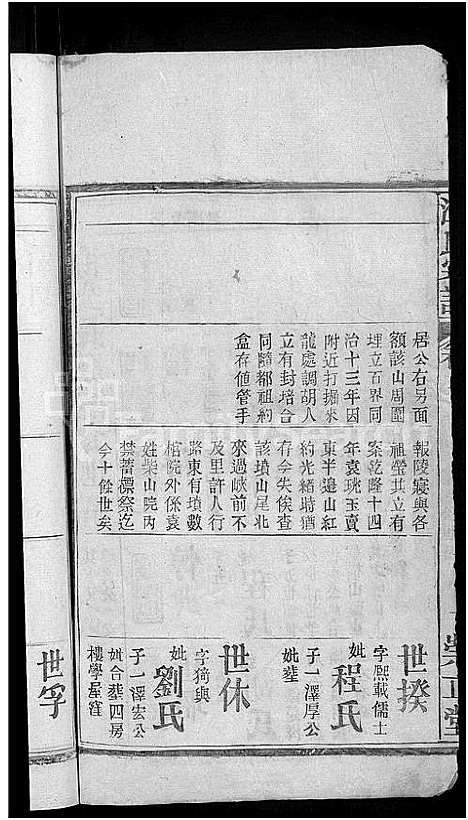 居公右另面
額該山周圍
埋立百界同
治十三年因
附近打掘來
龍處調胡人
立有封培合
同隨都祖約
盒存値管手
報陵寢與各
祖塋其立有
案乾隆十四
年袁珖玉賣
東半邉山紅
約光緒時猶
存今失俟查
該墳山尾北
來過峽前不
及里許人行
路東有墳數
棺院外係袁
姓柴山院內
禁蓄標祭迄
今十餘世矣
世揆
字熙載儒士
妣程氏
子一澤厚公
妣葬
世休
字猗與
妣劉氏
子一澤宏公
妣合葬四房
樓學屋窪
世孚